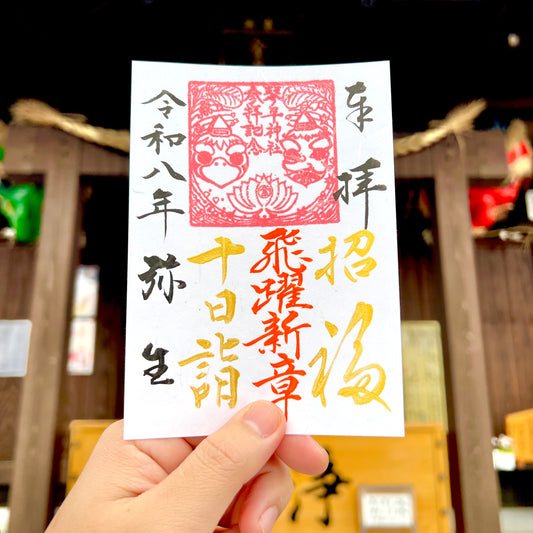 奉拝
招福
琴平神社
参拝記念
飛躍新章
十日詣
令和八年
弥生
浄